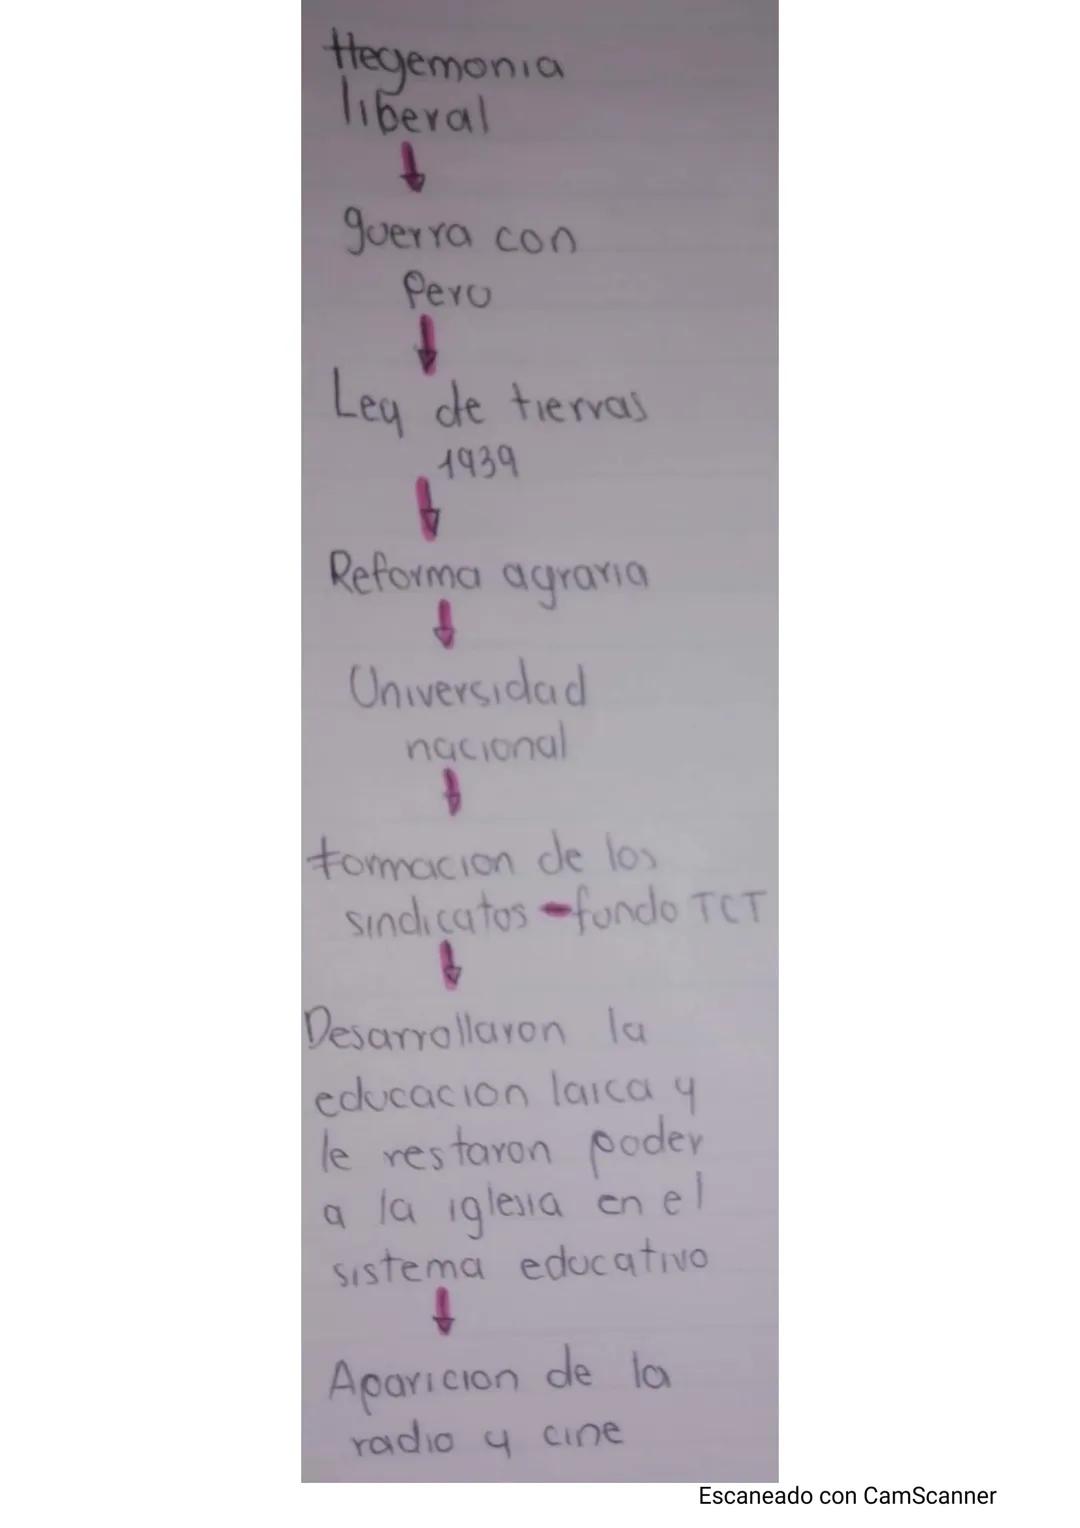 Hegemonia
liberal
guerra con
Peru
Ley de tierras
1939
Reforma agraria
Universidad
nacional
formacion de los
sindicatos - fondo TCT
Desarrollaron la
educacion laica y
le restaron poder
a la iglesia en el
sistema educativo
Aparicion de la
radio y cine
Escaneado con CamScanner